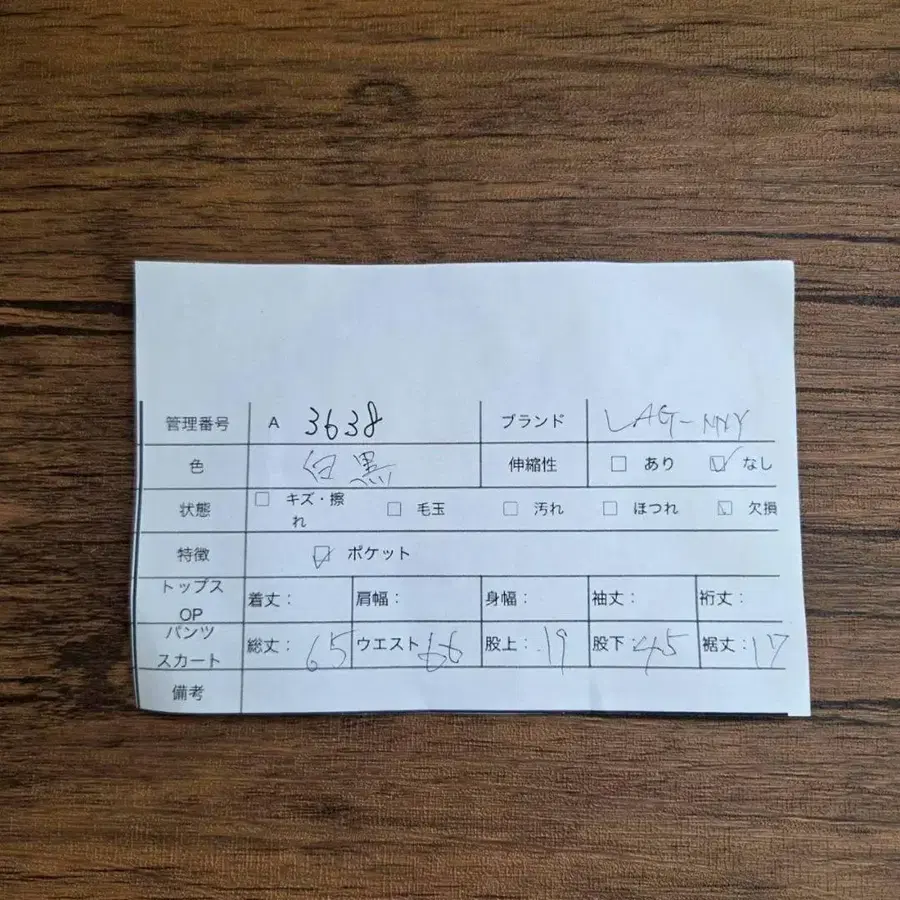 管理番号 A 3638 ブランド LAG-NNY
色 白黒 伸縮性 □ あり ☑ なし
状態 □ キズ・擦れ □ 毛玉 □ 汚れ □ ほつれ ☑ 欠損
特徴 ☑ ポケット
トップス OP 着丈: 肩幅: 身幅: 袖丈: 裄丈:
パンツ スカート 総丈: 65 ウエスト 66 股上: 19 股下: 45 裾丈: 17
備考